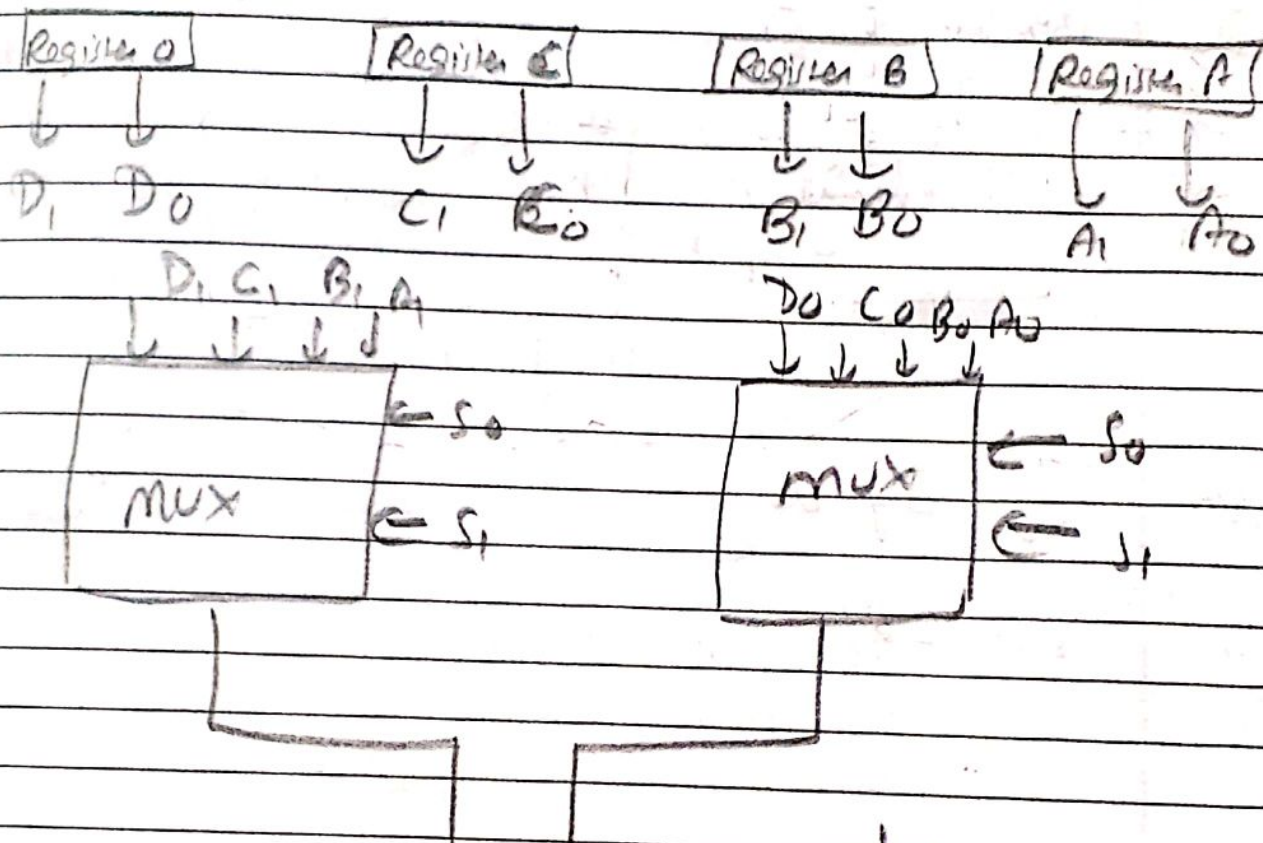 Register D Register C Register B Register A
D1 D0 C1 C0 B1 B0 A1 A0
D1 C1 B1 A1 D0 C0 B0 A0
S0 S0
MUX MUX
S1 S1